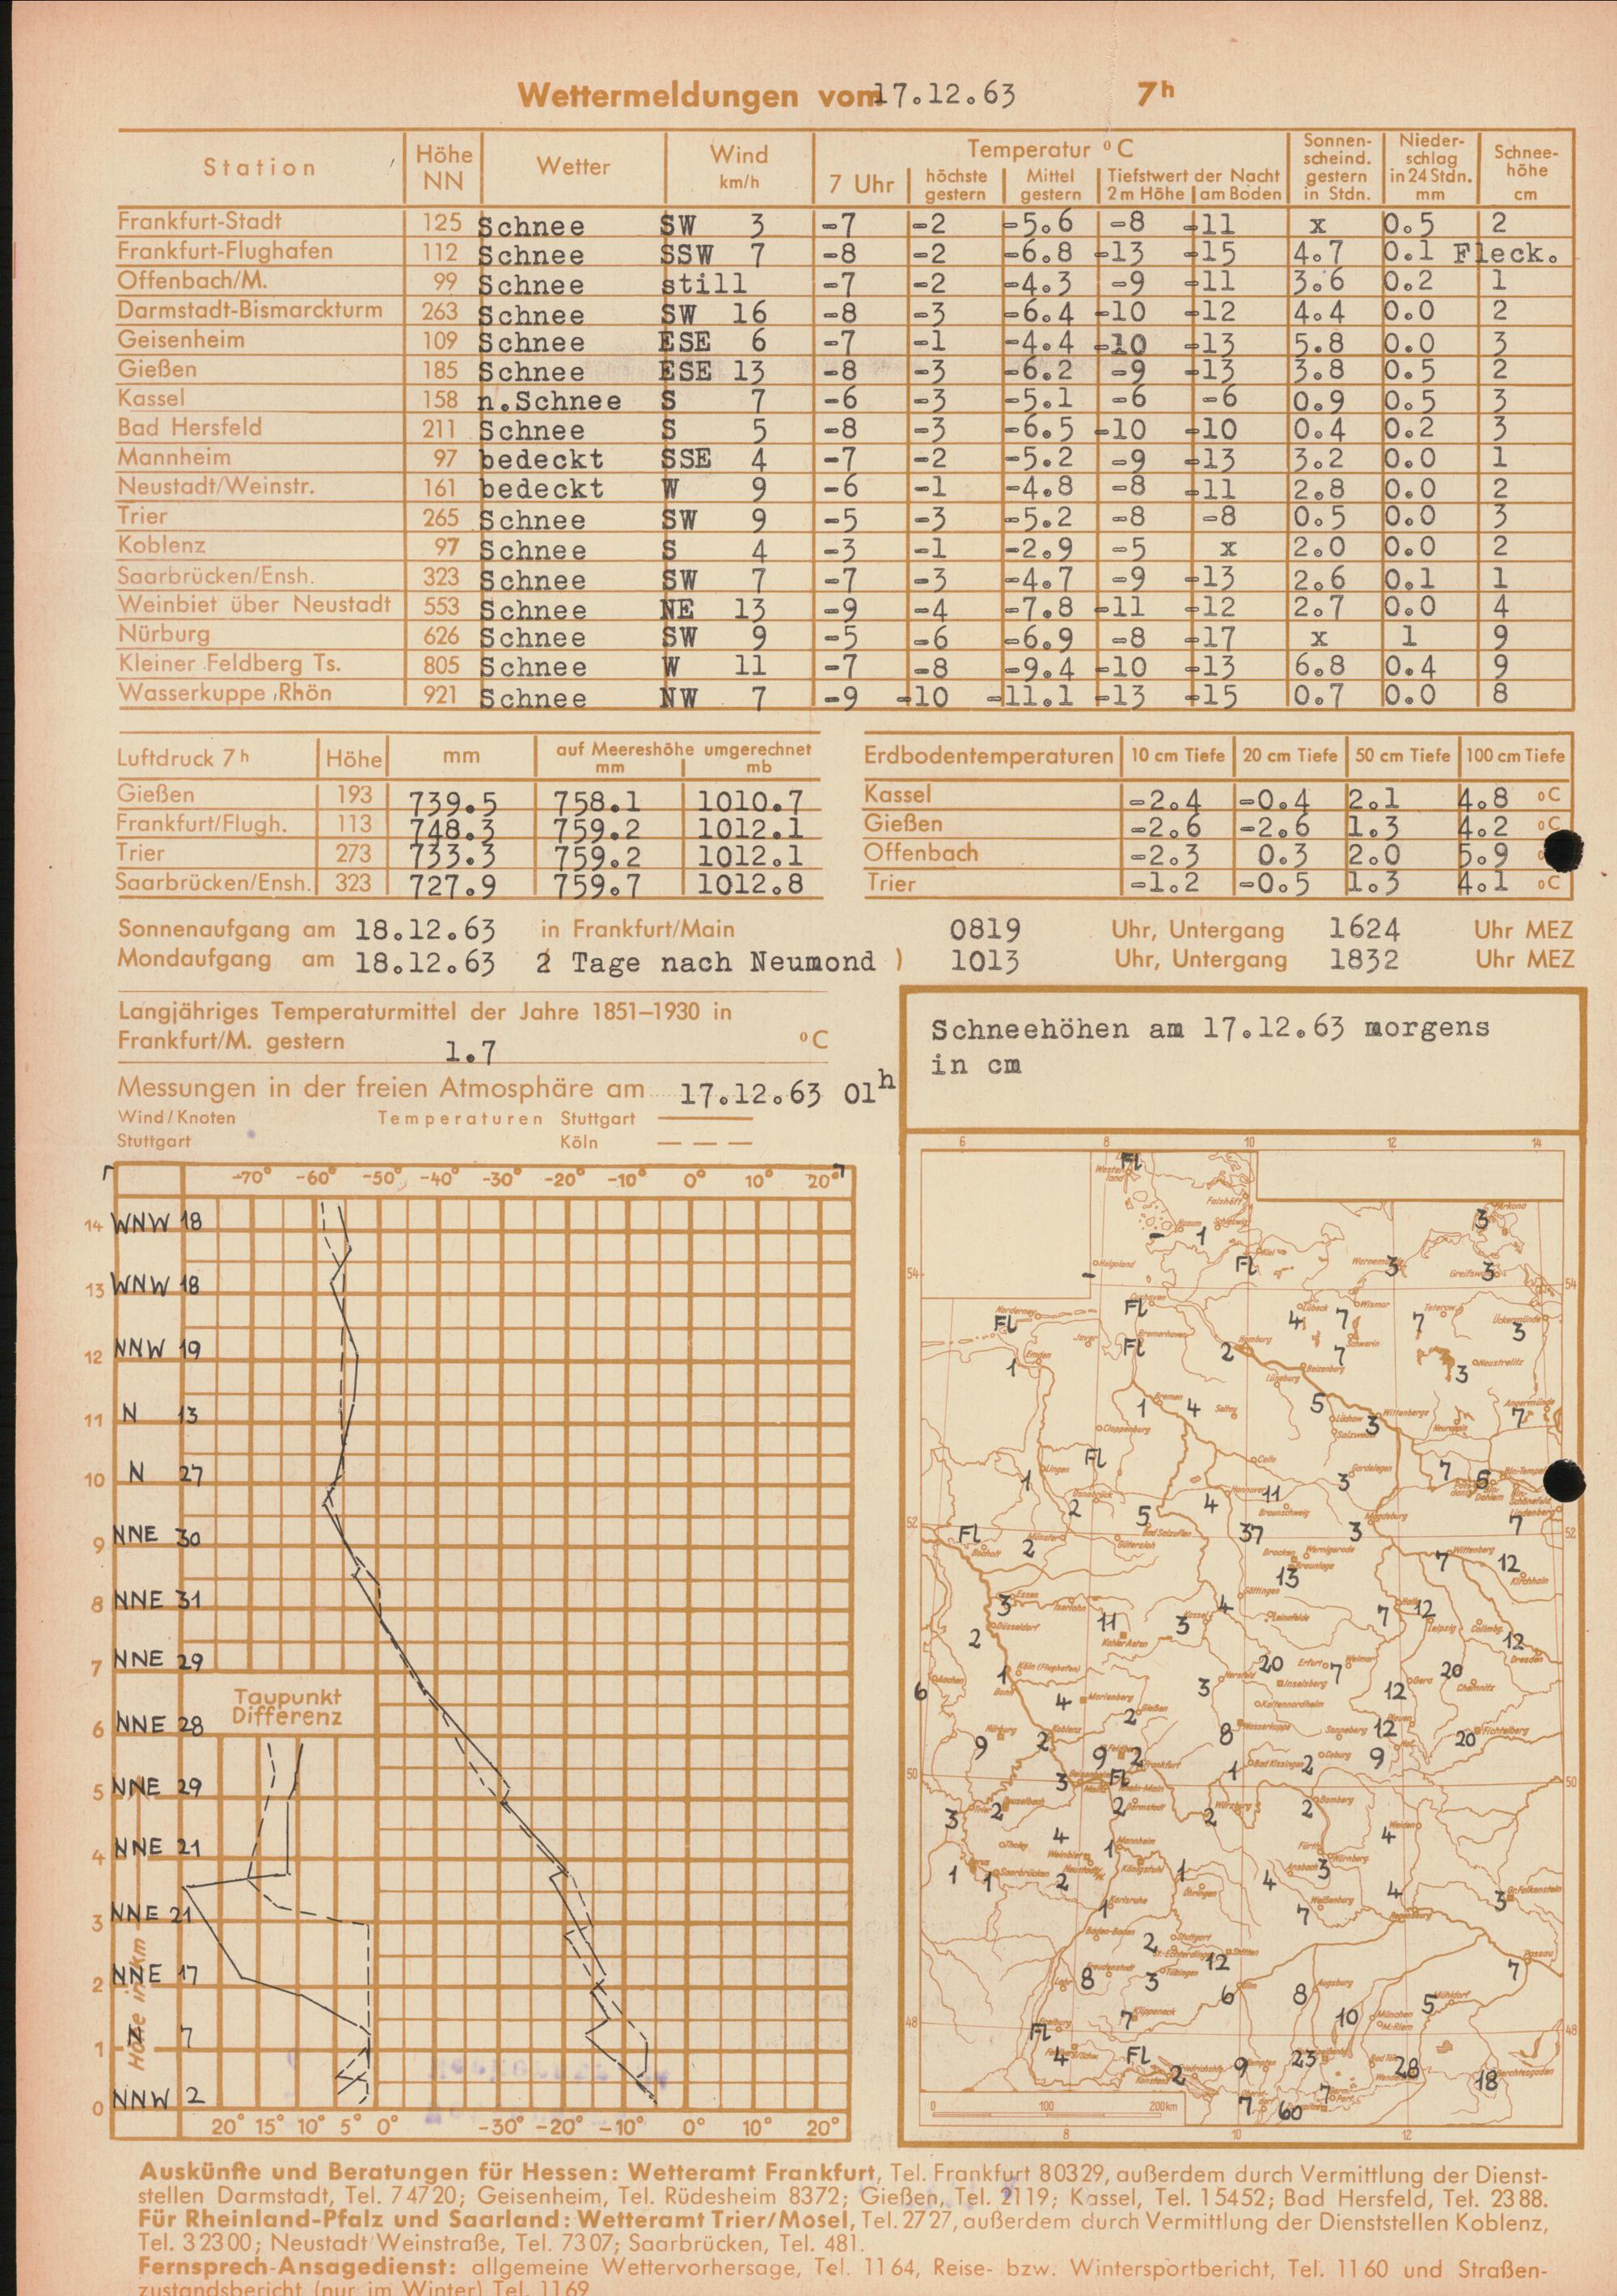 Wettermeldungen vom 17.12.63 7h
Station Höhe NN Wetter Wind km/h Temperatur °C Sonnenscheind. gestern in Stdn. Niederschlag in 24 Stdn. mm Schneehöhe cm
7 Uhr höchste gestern Mittel gestern Tiefstwert der Nacht 2 m Höhe am Boden
Frankfurt-Stadt 125 Schnee SW 3 -7 -2 -5.6 -8 -11 x 0.5 2
Frankfurt-Flughafen 112 Schnee SSW 7 -8 -2 -6.8 -13 -15 4.7 0.1 Fleck.
Offenbach/M. 99 Schnee still -7 -2 -4.3 -9 -11 3.6 0.2 1
Darmstadt-Bismarckturm 263 Schnee SW 16 -8 -3 -6.4 -10 -12 4.4 0.0 2
Geisenheim 109 Schnee ESE 6 -7 -1 -4.4 -10 -13 5.8 0.0 3
Gießen 185 Schnee ESE 13 -8 -3 -6.2 -9 -13 3.8 0.5 2
Kassel 158 n.Schnee S 7 -6 -3 -5.1 -6 -6 0.9 0.5 3
Bad Hersfeld 211 Schnee S 5 -8 -3 -6.5 -10 -10 0.4 0.2 3
Mannheim 97 bedeckt SSE 4 -7 -2 -5.2 -9 -13 3.2 0.0 1
Neustadt/Weinstr. 161 bedeckt W 9 -6 -1 -4.8 -8 -11 2.8 0.0 2
Trier 265 Schnee SW 9 -5 -3 -5.2 -8 -8 0.5 0.0 3
Koblenz 97 Schnee S 4 -3 -1 -2.9 -5 x 2.0 0.0 2
Saarbrücken/Ensh. 323 Schnee SW 7 -7 -3 -4.7 -9 -13 2.6 0.1 1
Weinbiet über Neustadt 553 Schnee NE 13 -9 -4 -7.8 -11 -12 2.7 0.0 4
Nürburg 626 Schnee SW 9 -5 -6 -6.9 -8 -17 x 1 9
Kleiner Feldberg Ts. 805 Schnee W 11 -7 -8 -9.4 -10 -13 6.8 0.4 9
Wasserkuppe Rhön 921 Schnee NW 7 -9 -10 -11.1 -13 -15 0.7 0.0 8
Luftdruck 7h Höhe mm auf Meereshöhe umgerechnet mm mb
Gießen 193 739.5 758.1 1010.7
Frankfurt/Flugh. 113 748.3 759.2 1012.1
Trier 273 733.3 759.2 1012.1
Saarbrücken/Ensh. 323 727.9 759.7 1012.8
Erdbodentemperaturen 10 cm Tiefe 20 cm Tiefe 50 cm Tiefe 100 cm Tiefe
Kassel -2.4 -0.4 2.1 4.8 °C
Gießen -2.6 -2.6 1.3 4.2 °C
Offenbach -2.3 0.3 2.0 5.9
Trier -1.2 -0.5 1.3 4.1 °C
Sonnenaufgang am 18.12.63 in Frankfurt/Main 0819 Uhr, Untergang 1624 Uhr MEZ
Mondaufgang am 18.12.63 2 Tage nach Neumond ) 1013 Uhr, Untergang 1832 Uhr MEZ
Langjähriges Temperaturmittel der Jahre 1851–1930 in
Frankfurt/M. gestern 1.7 °C
Messungen in der freien Atmosphäre am 17.12.63 01h
Wind/Knoten Temperaturen Stuttgart
Stuttgart Köln
-70° -60° -50° -40° -30° -20° -10° 0° 10° 20°
14 WNW 18
13 WNW 18
12 NNW 19
11 N 13
10 N 27
9 NNE 30
8 NNE 31
7 NNE 29
Taupunkt
Differenz
6 NNE 28
5 NNE 29
4 NNE 21
3 NNE 21
2 NNE 17
1 7
0 NNW 2
Höhe in km
20° 15° 10° 5° 0° -30° -20° -10° 0° 10° 20°
Schneehöhen am 17.12.63 morgens
in cm
6 8 10 12 14
Fl
3
- 1
Fl 3 3
54 - 54
Fl Fl 4 7 7 3
Fl 2 7
1 3
1 4 5 3 7
Fl
1 3 7 6
2 5 4 11
52 Fl 2 37 3 7 52
7 12
13
3 4 7 12
11 3
2 12
1 20 7 20
6 4 3 12
2
9 2 8 12 20
9 2 9
50 3 Fl 1 2 50
3 2 2 2 2
4 1 4
1 1 2 1 4 3
1 7 4 3
2 12
8 3 7
6 8 5
48 7 10 48
Fl
4 Fl 2 9 23 28 18
7 60 7
0 100 200km
8 10 12
Auskünfte und Beratungen für Hessen: Wetteramt Frankfurt, Tel. Frankfurt 80329, außerdem durch Vermittlung der Dienst-
stellen Darmstadt, Tel. 74720; Geisenheim, Tel. Rüdesheim 8372; Gießen, Tel. 2119; Kassel, Tel. 15452; Bad Hersfeld, Tel. 2388.
Für Rheinland-Pfalz und Saarland: Wetteramt Trier/Mosel, Tel. 2727, außerdem durch Vermittlung der Dienststellen Koblenz,
Tel. 32300; Neustadt/Weinstraße, Tel. 7307; Saarbrücken, Tel. 481.
Fernsprech-Ansagedienst: allgemeine Wettervorhersage, Tel. 1164, Reise- bzw. Wintersportbericht, Tel. 1160 und Straßen-
zustandsbericht (nur im Winter) Tel. 1169